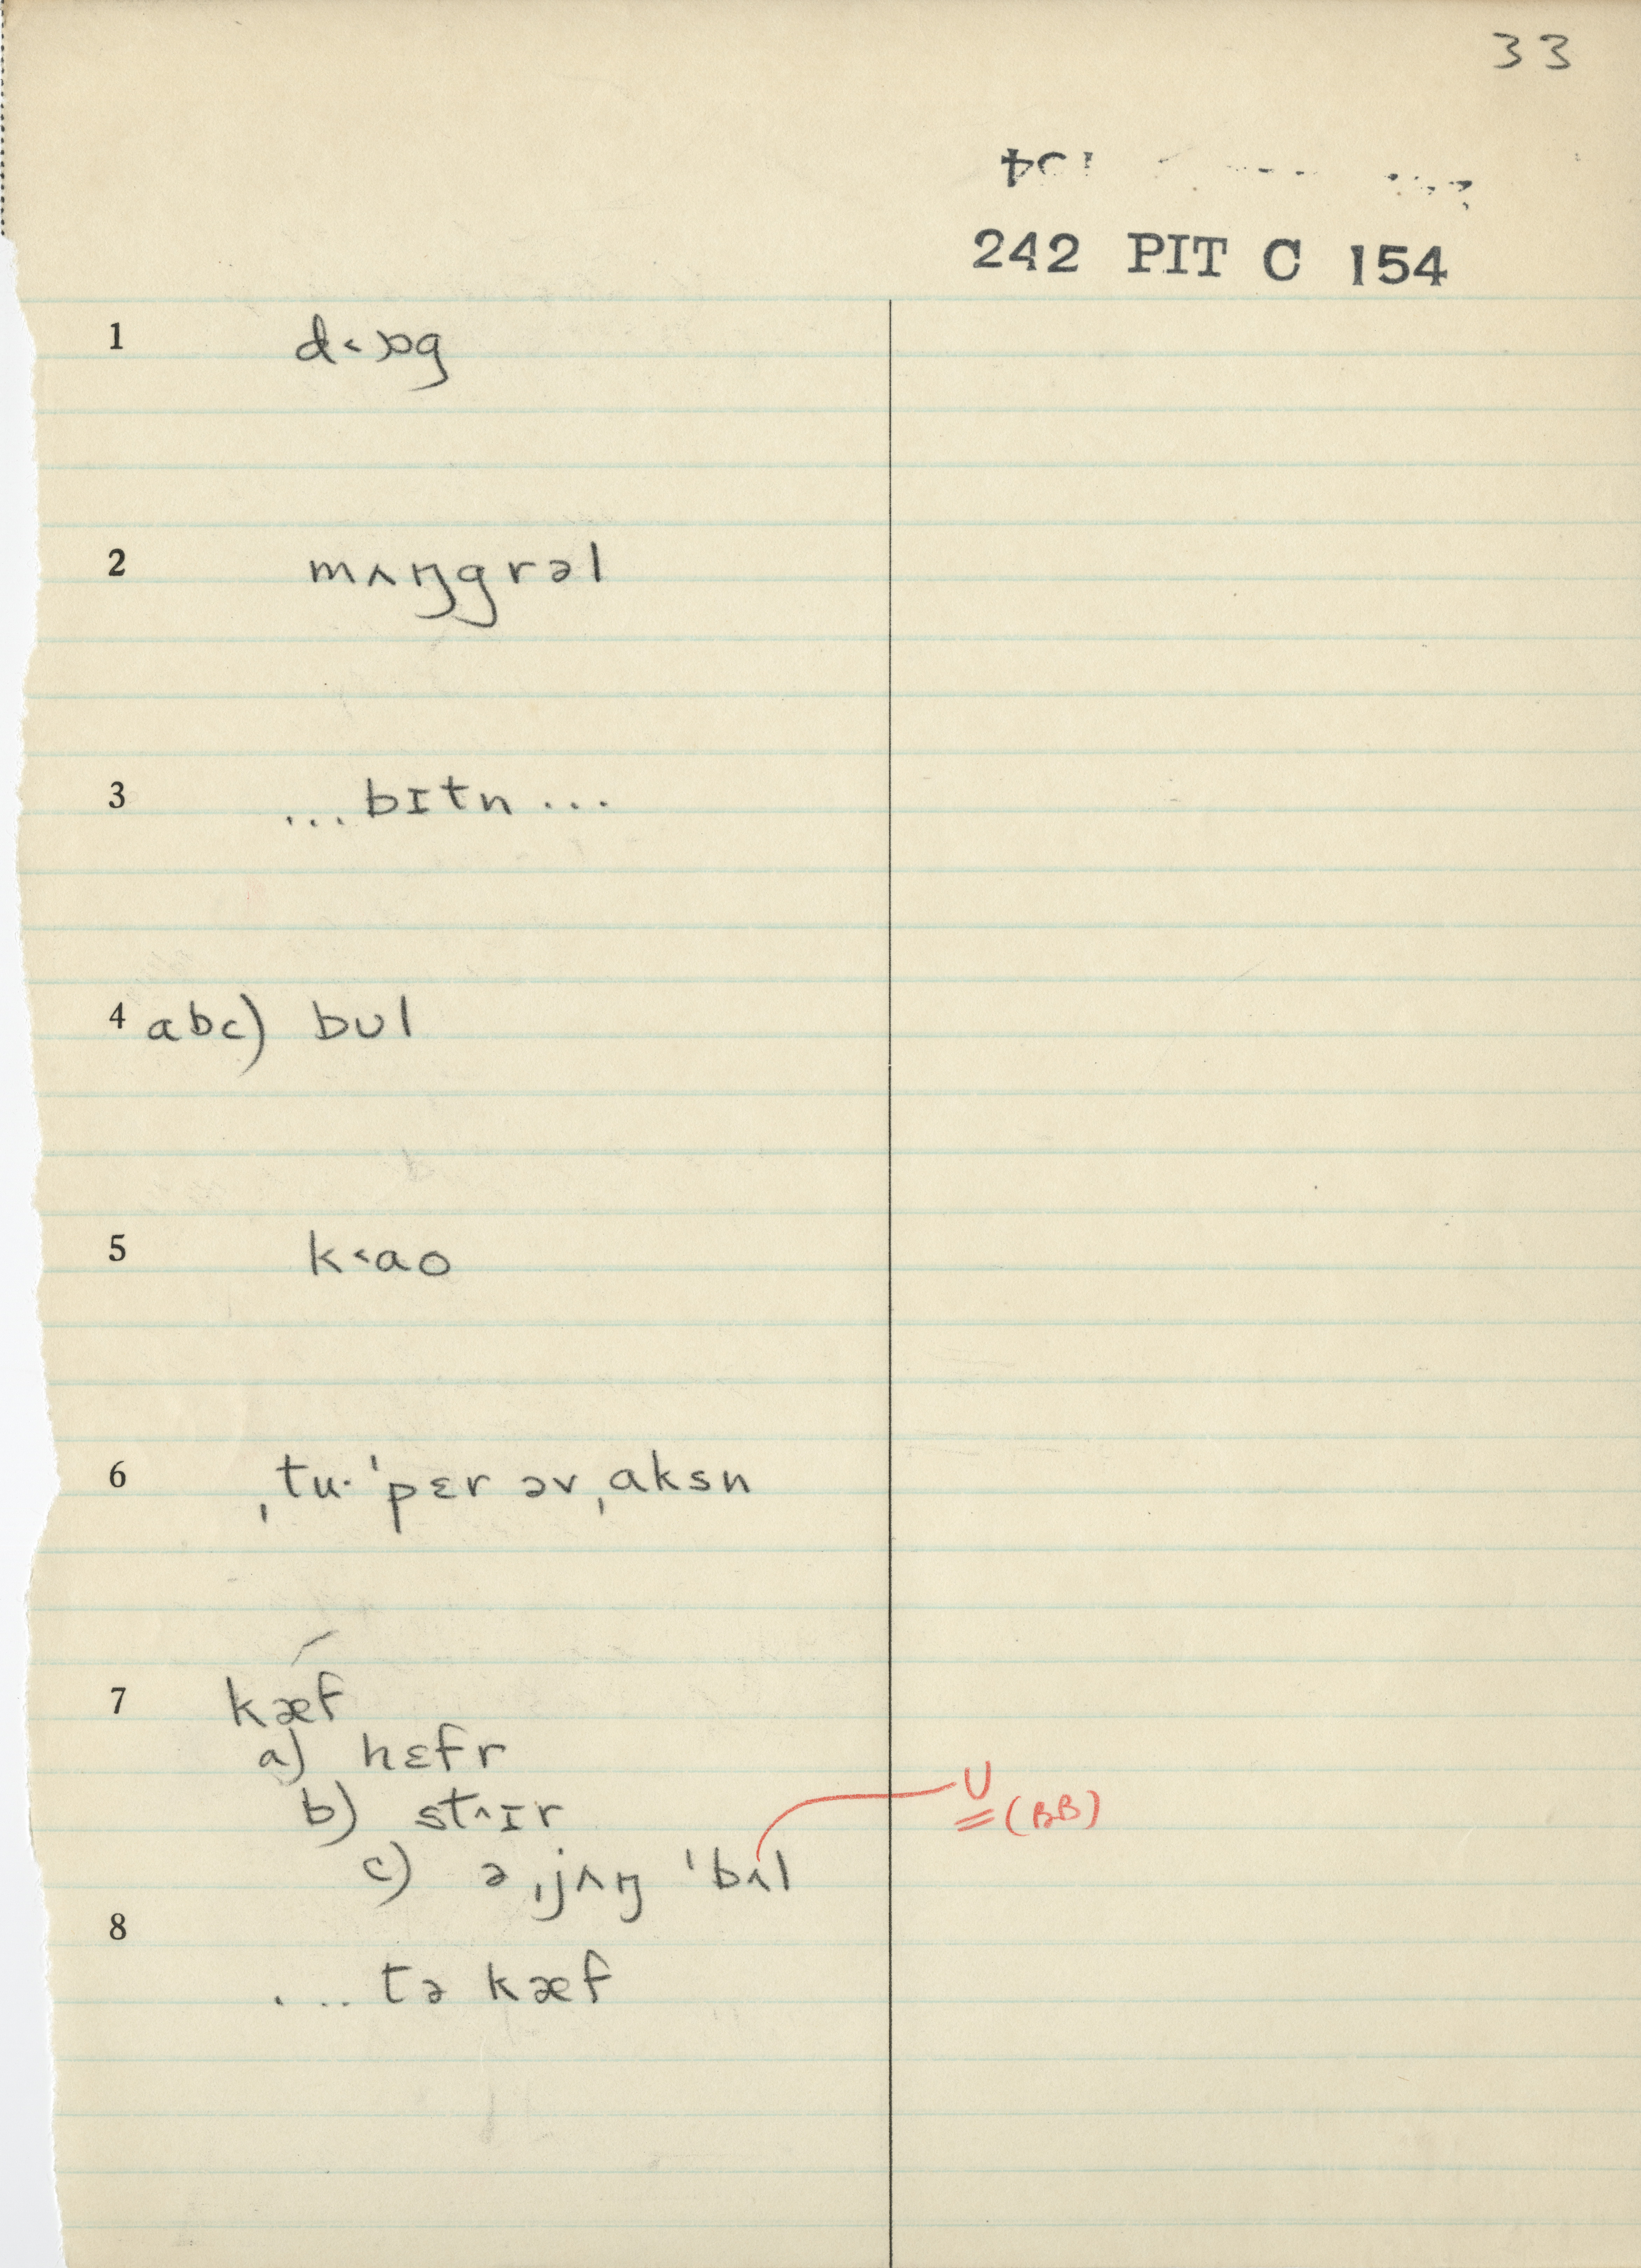 33
242 PIT C 154
1 d˂ɒg
2 mʌŋgrəl
3 ...bɪtn...
4 abc) bᴜl
5 k˂ao
6 ˌtu· ˈpɛr əv ˌaksn
7 kæf
a) hɛfr
b) st^ɪr
ᴜ (BB)
c) ə ˌjʌŋ ˈbʌl
8
...tə kæf